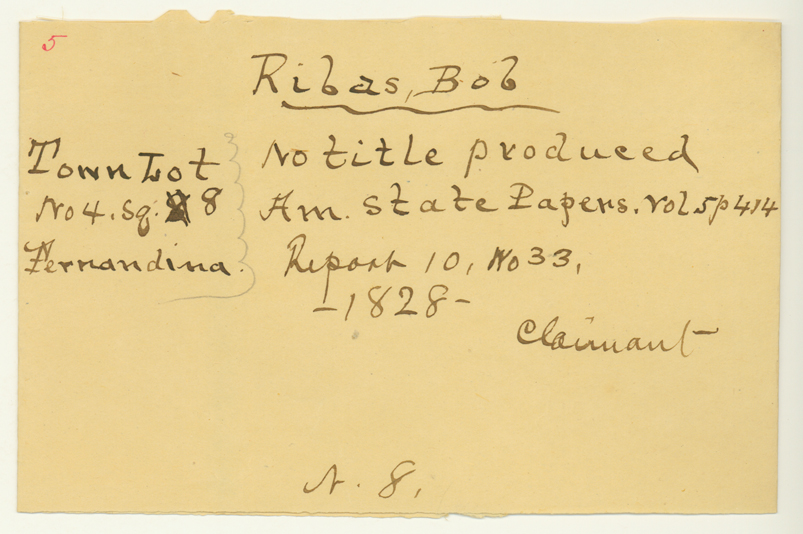 5
Ribas, Bob
Town Lot
No 4. Sq. 8
Fernandina.
No title produced
Am. State Papers. Vol 5 p 414
Report 10, No 33,
-1828-
Claimant
N. 8.